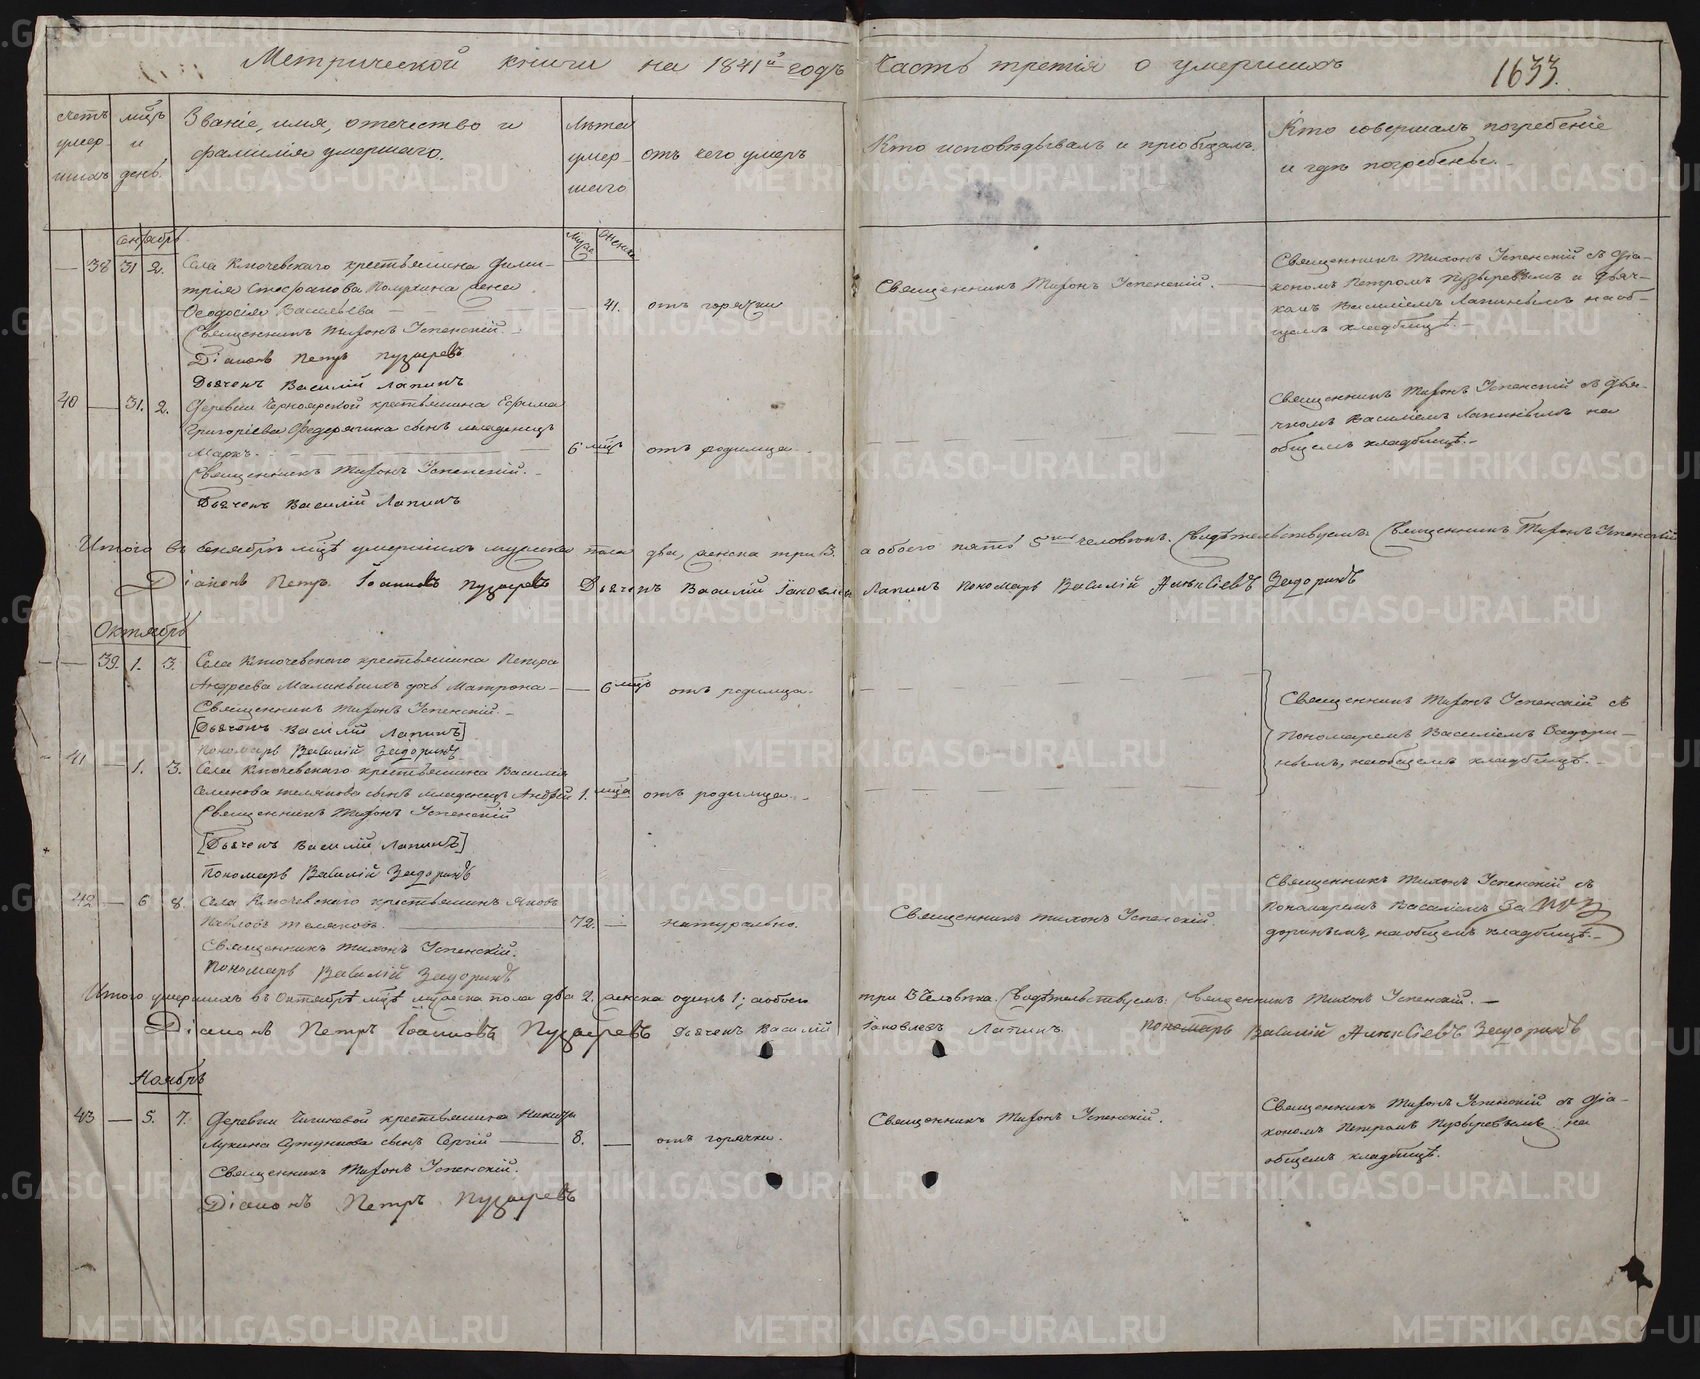 Метрической книги на 1841й годъ Часть третія о умершихъ
1633.
счетъ умер шихъ
мцъ и день.
Званіе, имя, отечество и фамилія умершаго.
Лѣта умер шаго
отъ чего умеръ
Кто исповѣдывалъ и пріобщалъ.
Кто совершалъ погребеніе
и гдѣ погребены.
Сентябрь
Муже Женск
— 38 31 2. Села Ключевскаго крестьянина Дими-
трія жена
Ѳеодосія Васильева — 41. отъ горячки
Священникъ Тихонъ Успенскій.
Священникъ Тихонъ Успенскій съ діа-
кономъ Петромъ Пузыревымъ и дьяч-
камъ Василіемъ Лапинымъ на об-
щемъ кладбищѣ.
Священникъ Тихонъ Успенскій.
Діаконъ Петръ Пузыревъ
Дьячокъ Василій Лапинъ
40 — 31. 2. Деревни Черноярской крестьянина Ефима
Григоріева сынъ младенецъ
Маркъ. 6 мцъ отъ родимца
Священникъ Тихонъ Успенскій съ дья-
чкомъ Василіемъ Лапинымъ на
общемъ кладбищѣ.
Священникъ Тихонъ Успенскій.
Дьячокъ Василій Лапинъ
Итого въ сентябрѣ мцѣ умершихъ мужска пола два, женска три 3. а обоего пять 5 человѣкъ. Свидѣтельствуемъ: Священникъ Тихонъ Успенскій
Діаконъ Петръ Іоанновъ Пузыревъ Дьячокъ Василій Іаковлевъ Лапинъ Пономарь Василій Алексіевъ Задоринъ
Октябрь
— 39. 1. 3. Села Ключевскаго крестьянина Петра
Андреева Малиныхъ дочь Матрона — 6 мцъ отъ родимца.
Священникъ Тихонъ Успенскій.
[Дьячокъ Василій Лапинъ]
Пономарь Василій Задоринъ
Священникъ Тихонъ Успенскій съ
пономаремъ Василіемъ Задори-
нымъ, на общемъ кладбищѣ.
41 — 1. 3. Села Ключевскаго крестьянина Василія
Семенова Телякова сынъ младенецъ Андрей 1. мца отъ родимца.
Священникъ Тихонъ Успенскій
[Дьячокъ Василій Лапинъ]
Пономарь Василій Задоринъ
42 — 6 8. Села Ключевскаго крестьянинъ Яковъ
Павловъ Теляковъ. 72. — натурально.
Священникъ Тихонъ Успенскій.
Священникъ Тихонъ Успенскій съ
пономаремъ Василіемъ За
доринымъ, на общемъ кладбищѣ.
Священникъ Тихонъ Успенскій.
Пономарь Василій Задоринъ
Итого умершихъ въ Октябрѣ мцѣ мужска пола два 2. женска одинъ 1; а обоего три 3 человѣка. Свидѣтельствуемъ: Священникъ Тихонъ Успенскій. —
Діаконъ Петръ Іоанновъ Пузыревъ Дьячокъ Василій Іаковлевъ Лапинъ. Пономарь Василій Алексіевъ Задоринъ
Ноябрь
43 — 5. 7. Деревни крестьянина Никиты
Лукина сынъ Сергій — 8. — отъ горячки.
Священникъ Тихонъ Успенскій.
Священникъ Тихонъ Успенскій съ діа-
кономъ Петромъ Пузыревымъ на
общемъ кладбищѣ.
Священникъ Тихонъ Успенскій.
Діаконъ Петръ Пузыревъ
METRIKI.GASO-URAL.RU